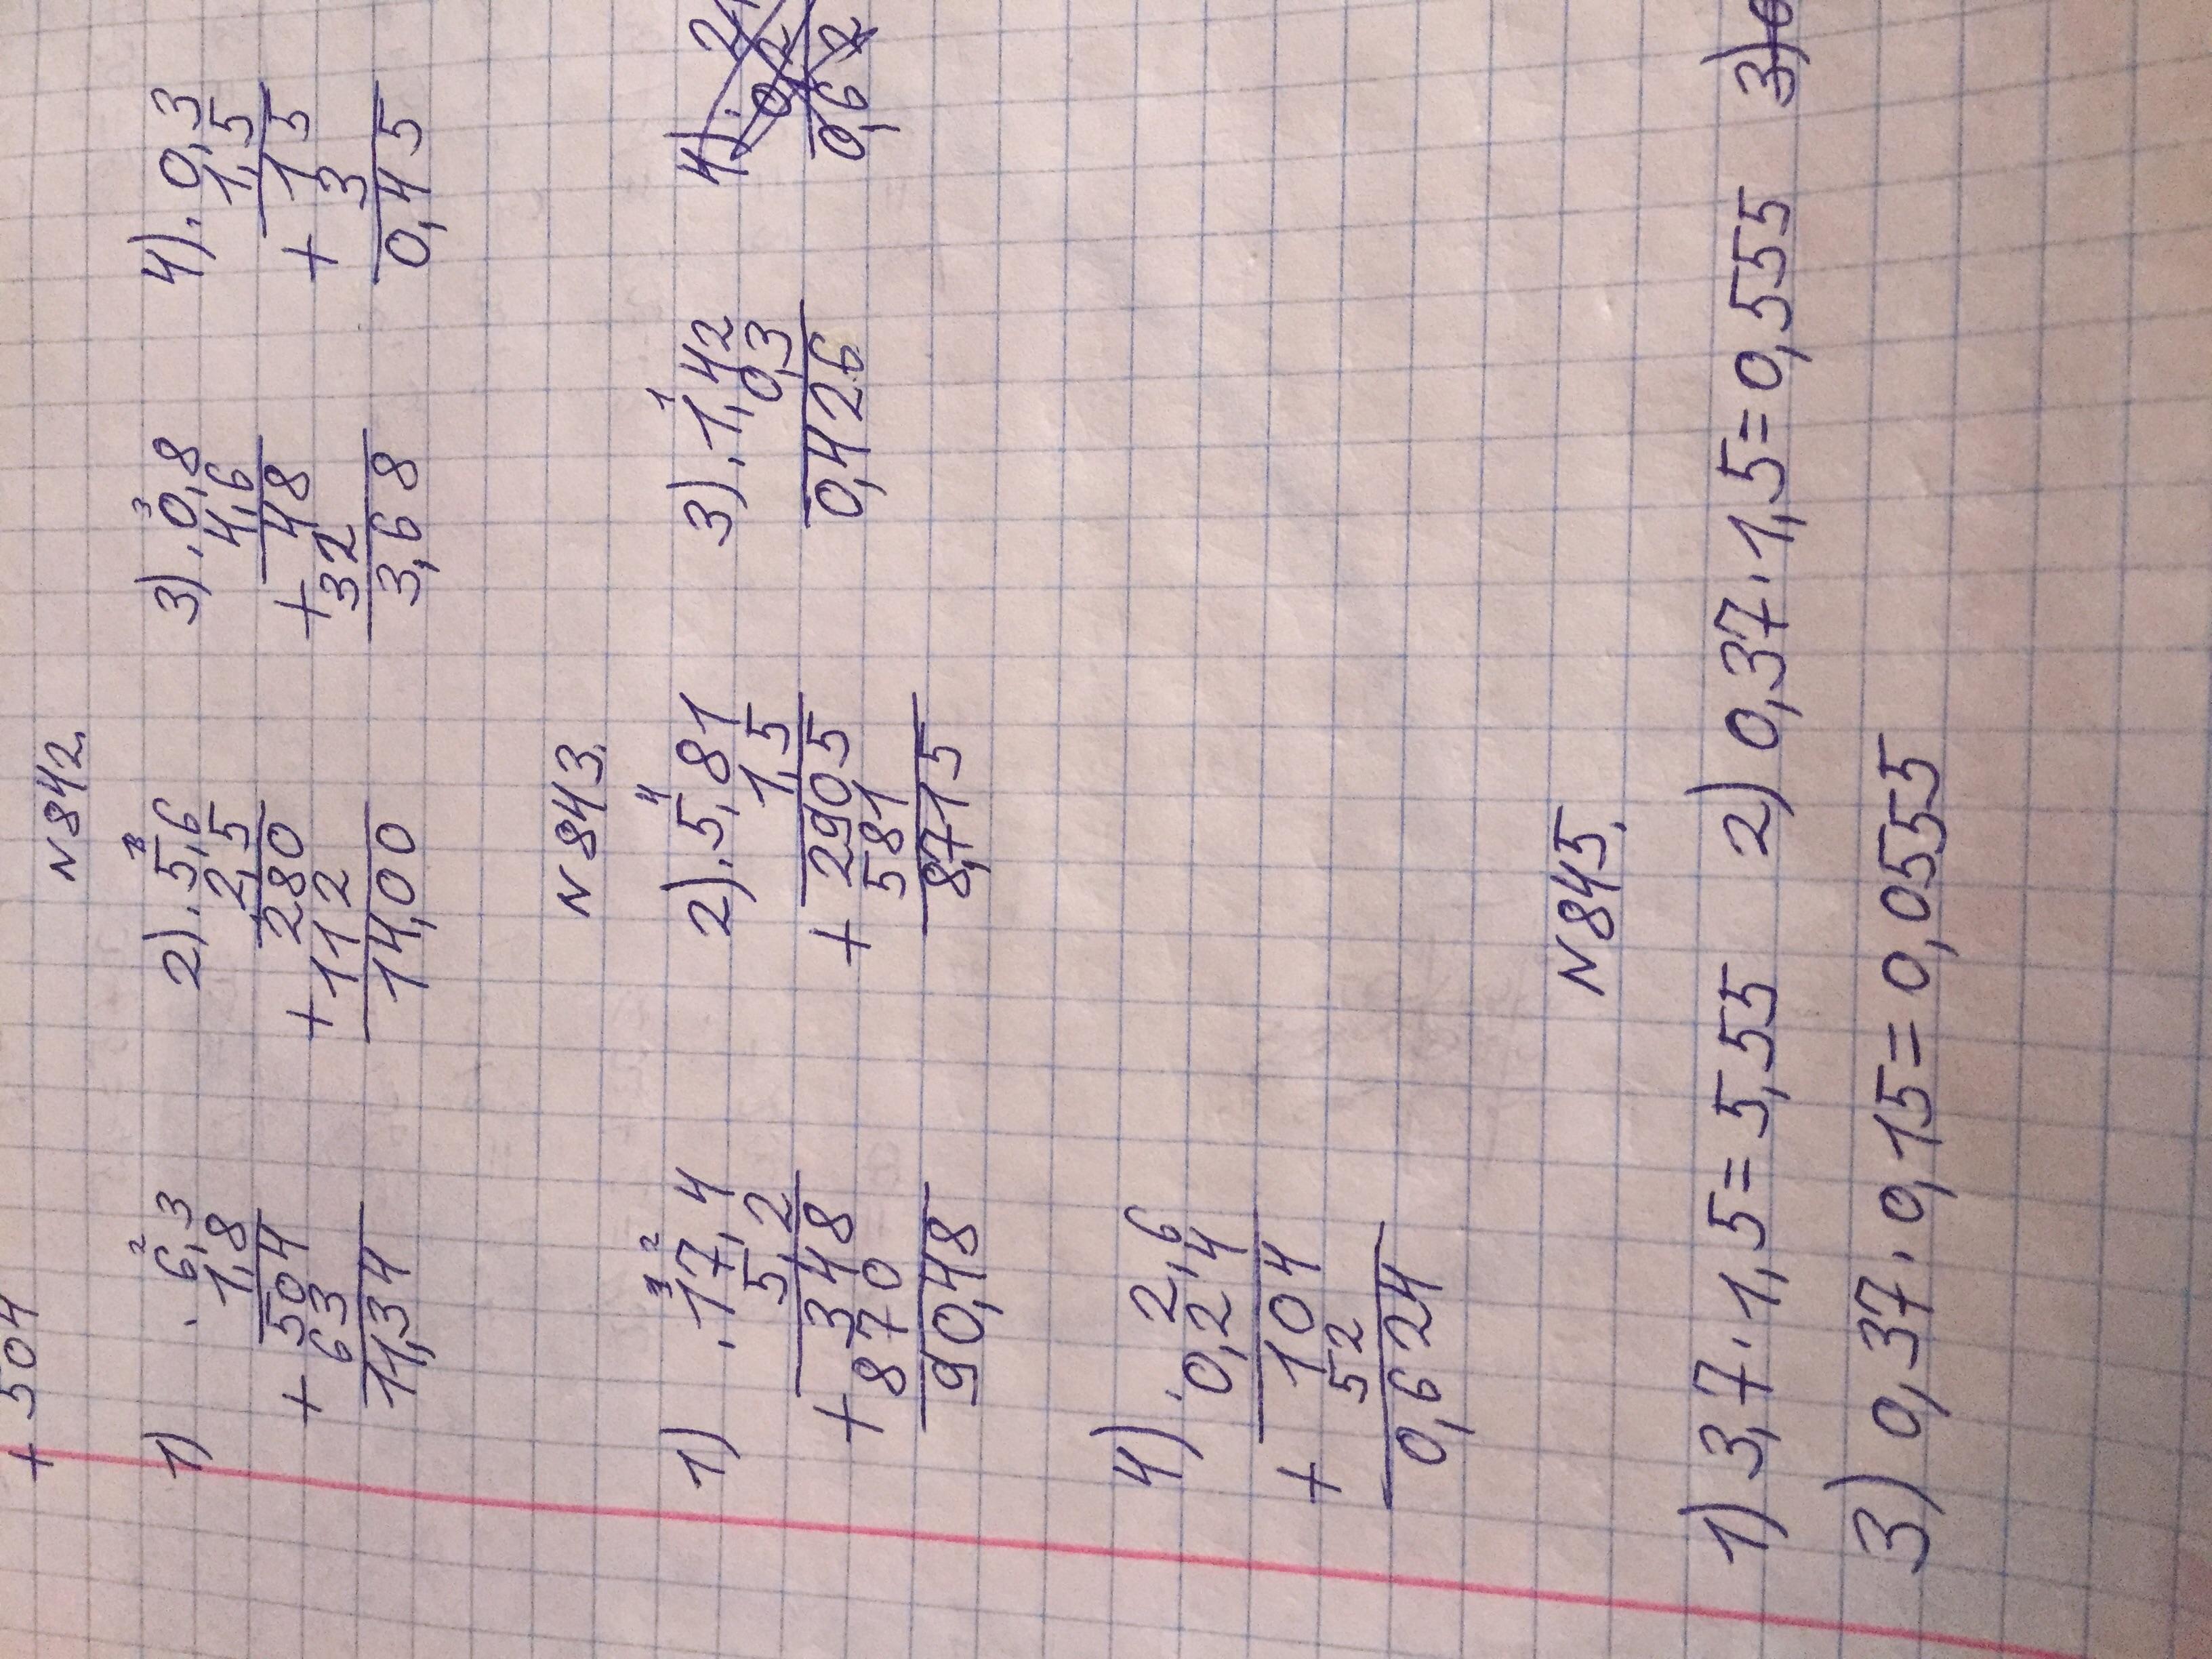 + 504
N 842.
1) · 6,3 2) · 5,6 3) · 0,8 4) · 0,3
1,8 2,5 4,6 1,5
+ 504 + 280 + 48 + 15
63 112 32 3
11,34 14,00 3,68 0,45
N 843.
1) · 17,4 2) · 5,81 3) · 1,42 4) ·
5,2 1,5 0,3
+ 348 + 2905 0,426 0,62
870 581
90,48 8,715
4) · 2,6
0,24
+ 104
52
0,624
N 845.
1) 3,7 · 1,5 = 5,55 2) 0,37 · 1,5 = 0,555 3)
3) 0,37 · 0,15 = 0,0555